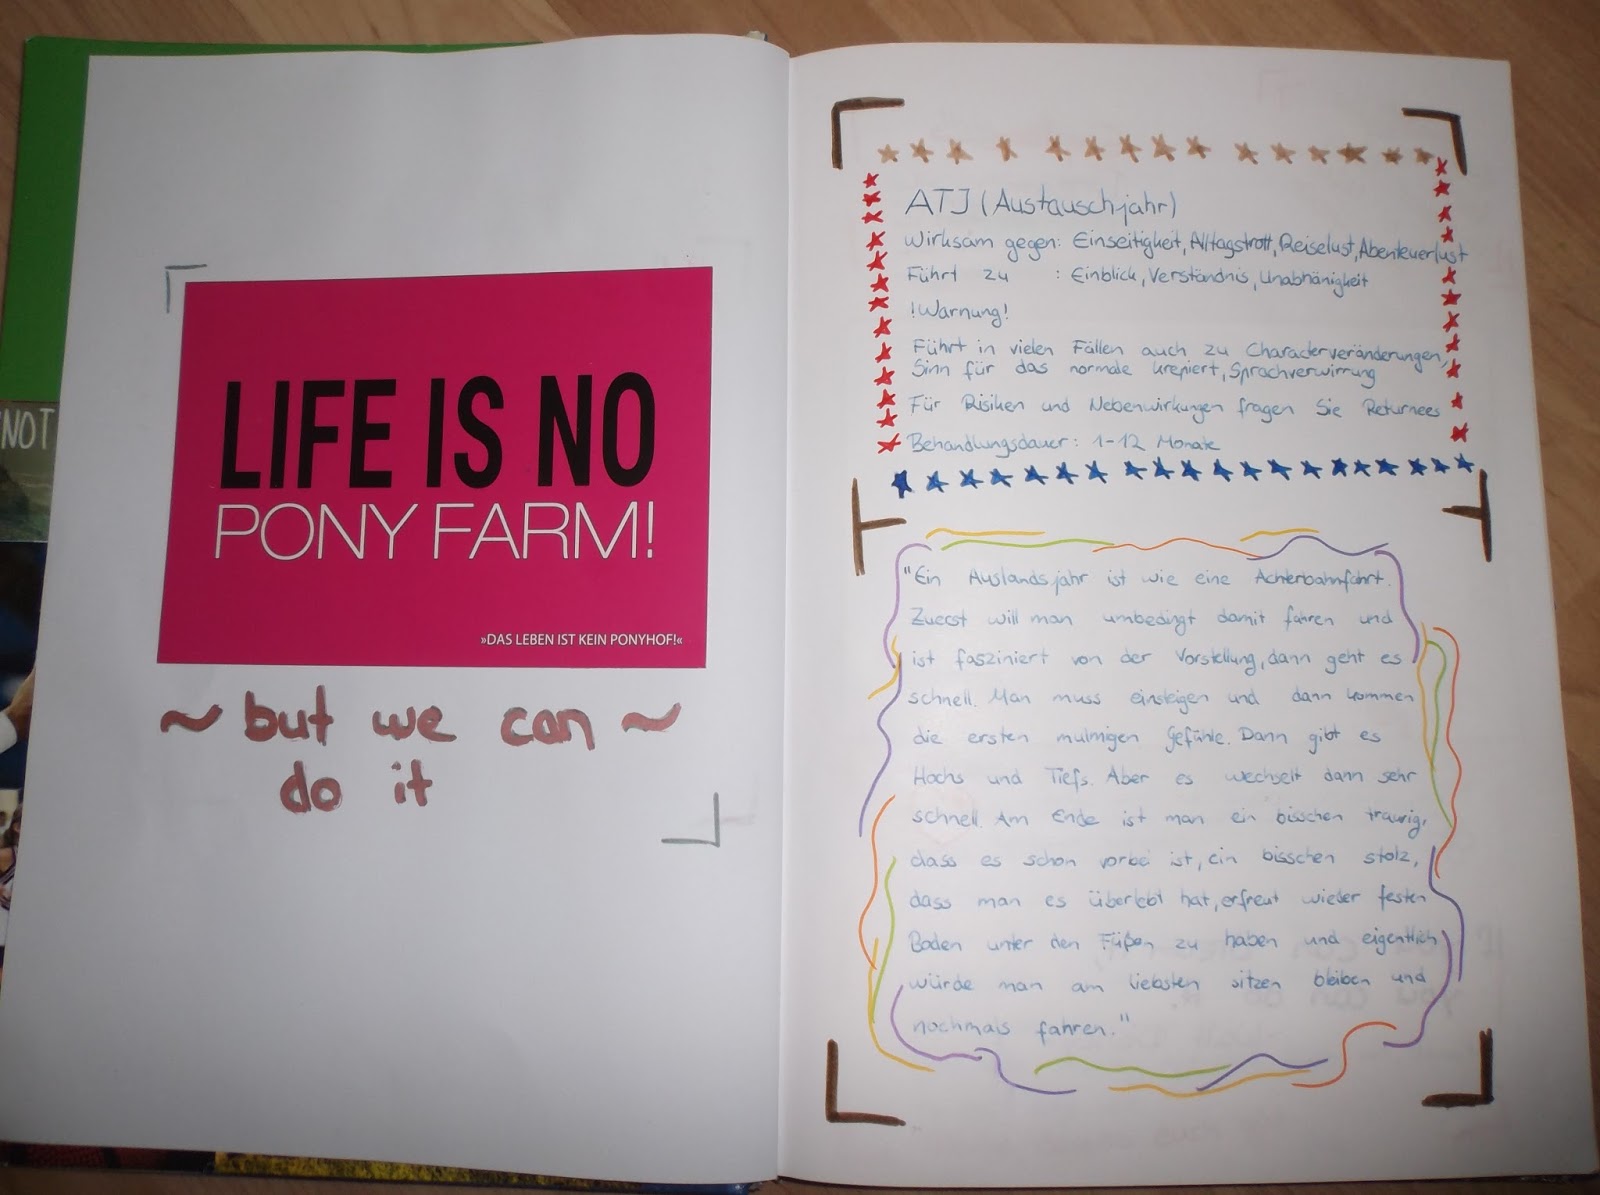 NOT
LIFE IS NO
PONY FARM!
»DAS LEBEN IST KEIN PONYHOF!«
~ but we can ~
do it
ATJ (Austauschjahr)
Wirksam gegen: Einseitigkeit, Alltagstrott, Reiselust, Abenteuerlust
Führt zu : Einblick, Verständnis, Unabhänigkeit
!Warnung!
Führt in vielen Fällen auch zu Characterveränderungen,
Sinn für das normale krepiert, Sprachverwirrung
Für Risiken und Nebenwirkungen fragen Sie Returnees
Behandlungsdauer: 1-12 Monate
"Ein Auslandsjahr ist wie eine Achterbahnfahrt.
Zuerst will man umbedingt damit fahren und
ist fasziniert von der Vorstellung, dann geht es
schnell. Man muss einsteigen und dann kommen
die ersten mulmigen Gefühle. Dann gibt es
Hochs und Tiefs. Aber es wechselt dann sehr
schnell. Am Ende ist man ein bisschen traurig,
dass es schon vorbei ist, ein bisschen stolz,
dass man es überlebt hat, erfreut wieder festen
Boden unter den Füßen zu haben und eigentlich
würde man am liebsten sitzen bleiben und
nochmals fahren."